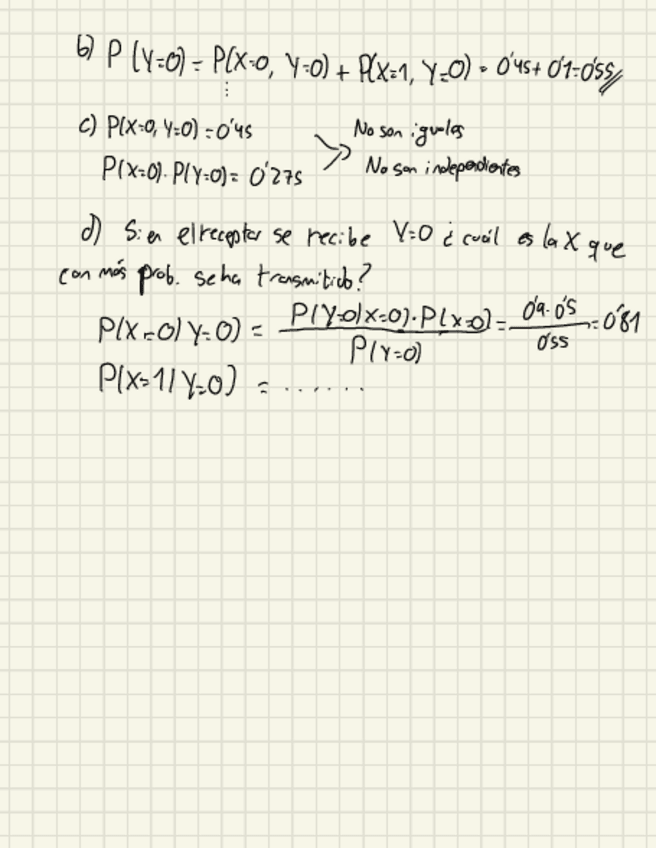 b) P(Y=0) = P(X=0, Y=0) + P(X=1, Y=0) = 0'45 + 0'1 = 0'55
⋮
c) P(X=0, Y=0) = 0'45
No son iguales
P(X=0) · P(Y=0) = 0'275
No son independientes
d) Si en el receptor se recibe Y=0 ¿cuál es la X que
con más prob. se ha transmitido?
P(X=0|Y=0) = P(Y=0|X=0) · P(X=0) / P(Y=0) = 0'9 · 0'5 / 0'55 = 0'81
P(X=1/Y=0) = .......